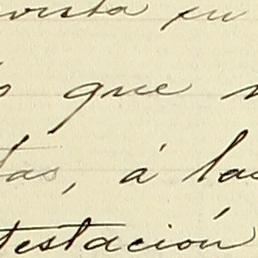 vista en
que
tas, á las
testación